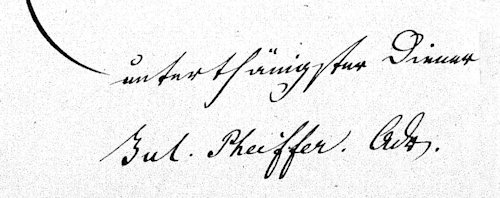 unterthänigster Diener
Jul. Pheiffer. Adv.